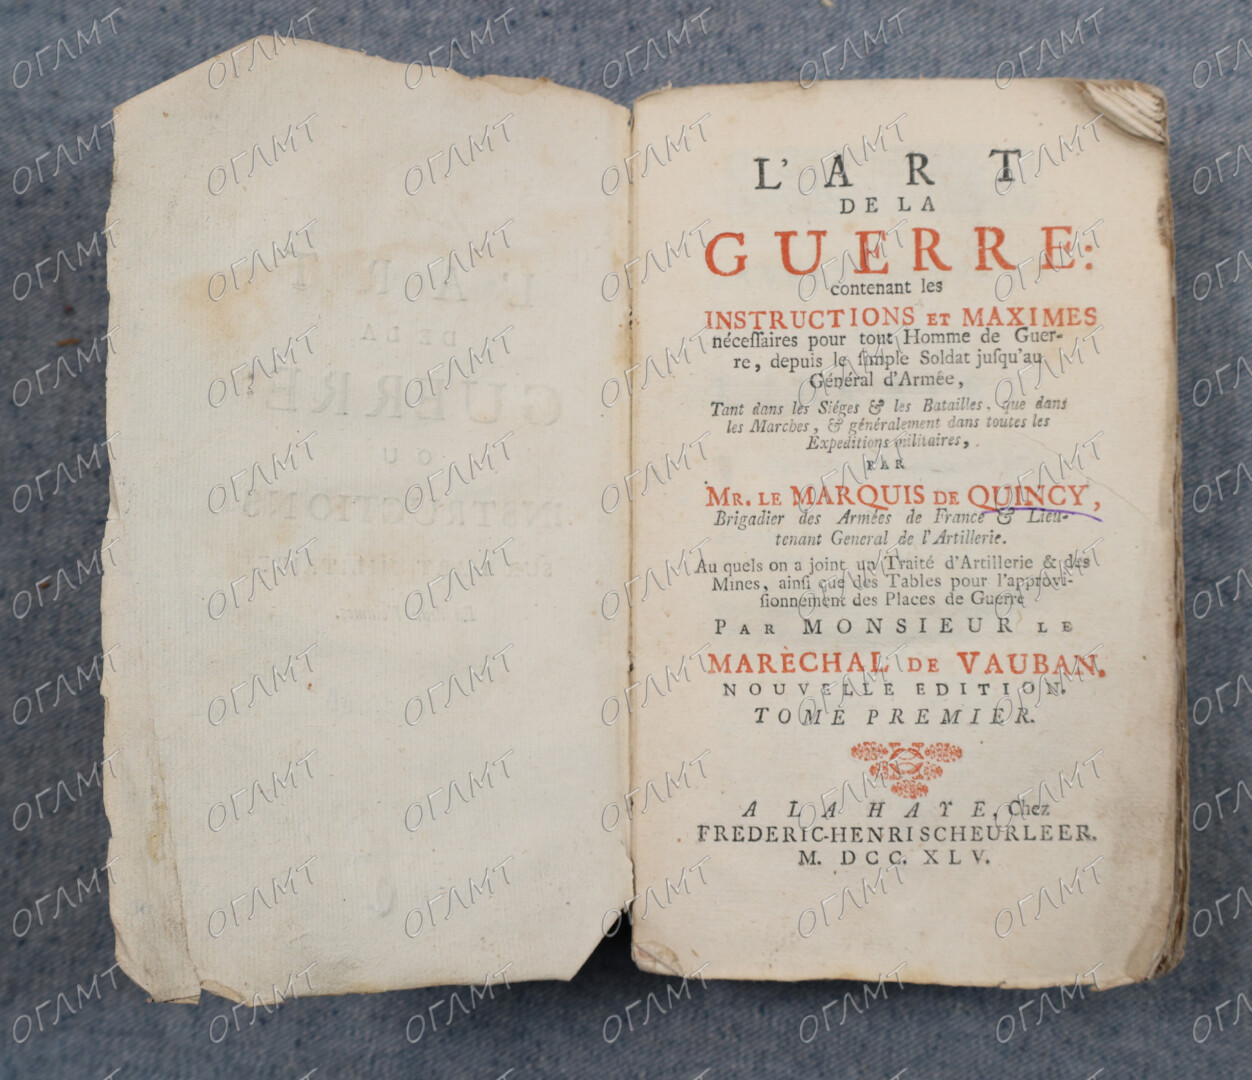 L'ART
DE LA
GUERRE:
contenant les
INSTRUCTIONS ET MAXIMES
nécessaires pour tout Homme de Guer-
re, depuis le simple Soldat jusqu'au
Général d'Armée,
Tant dans les Siéges & les Batailles, que dans
les Marches, & généralement dans toutes les
Expeditions militaires,
PAR
MR. LE MARQUIS DE QUINCY,
Brigadier des Armées de France & Lieu-
tenant General de l'Artillerie.
Au quels on a joint un Traité d'Artillerie & des
Mines, ainsi que des Tables pour l'approvi-
sionnement des Places de Guerre
PAR MONSIEUR LE
MARÈCHAL DE VAUBAN.
NOUVELLE EDITION.
TOME PREMIER.
A LA HAYE, Chez
FREDERIC-HENRI SCHEURLEER.
M. DCC. XLV.